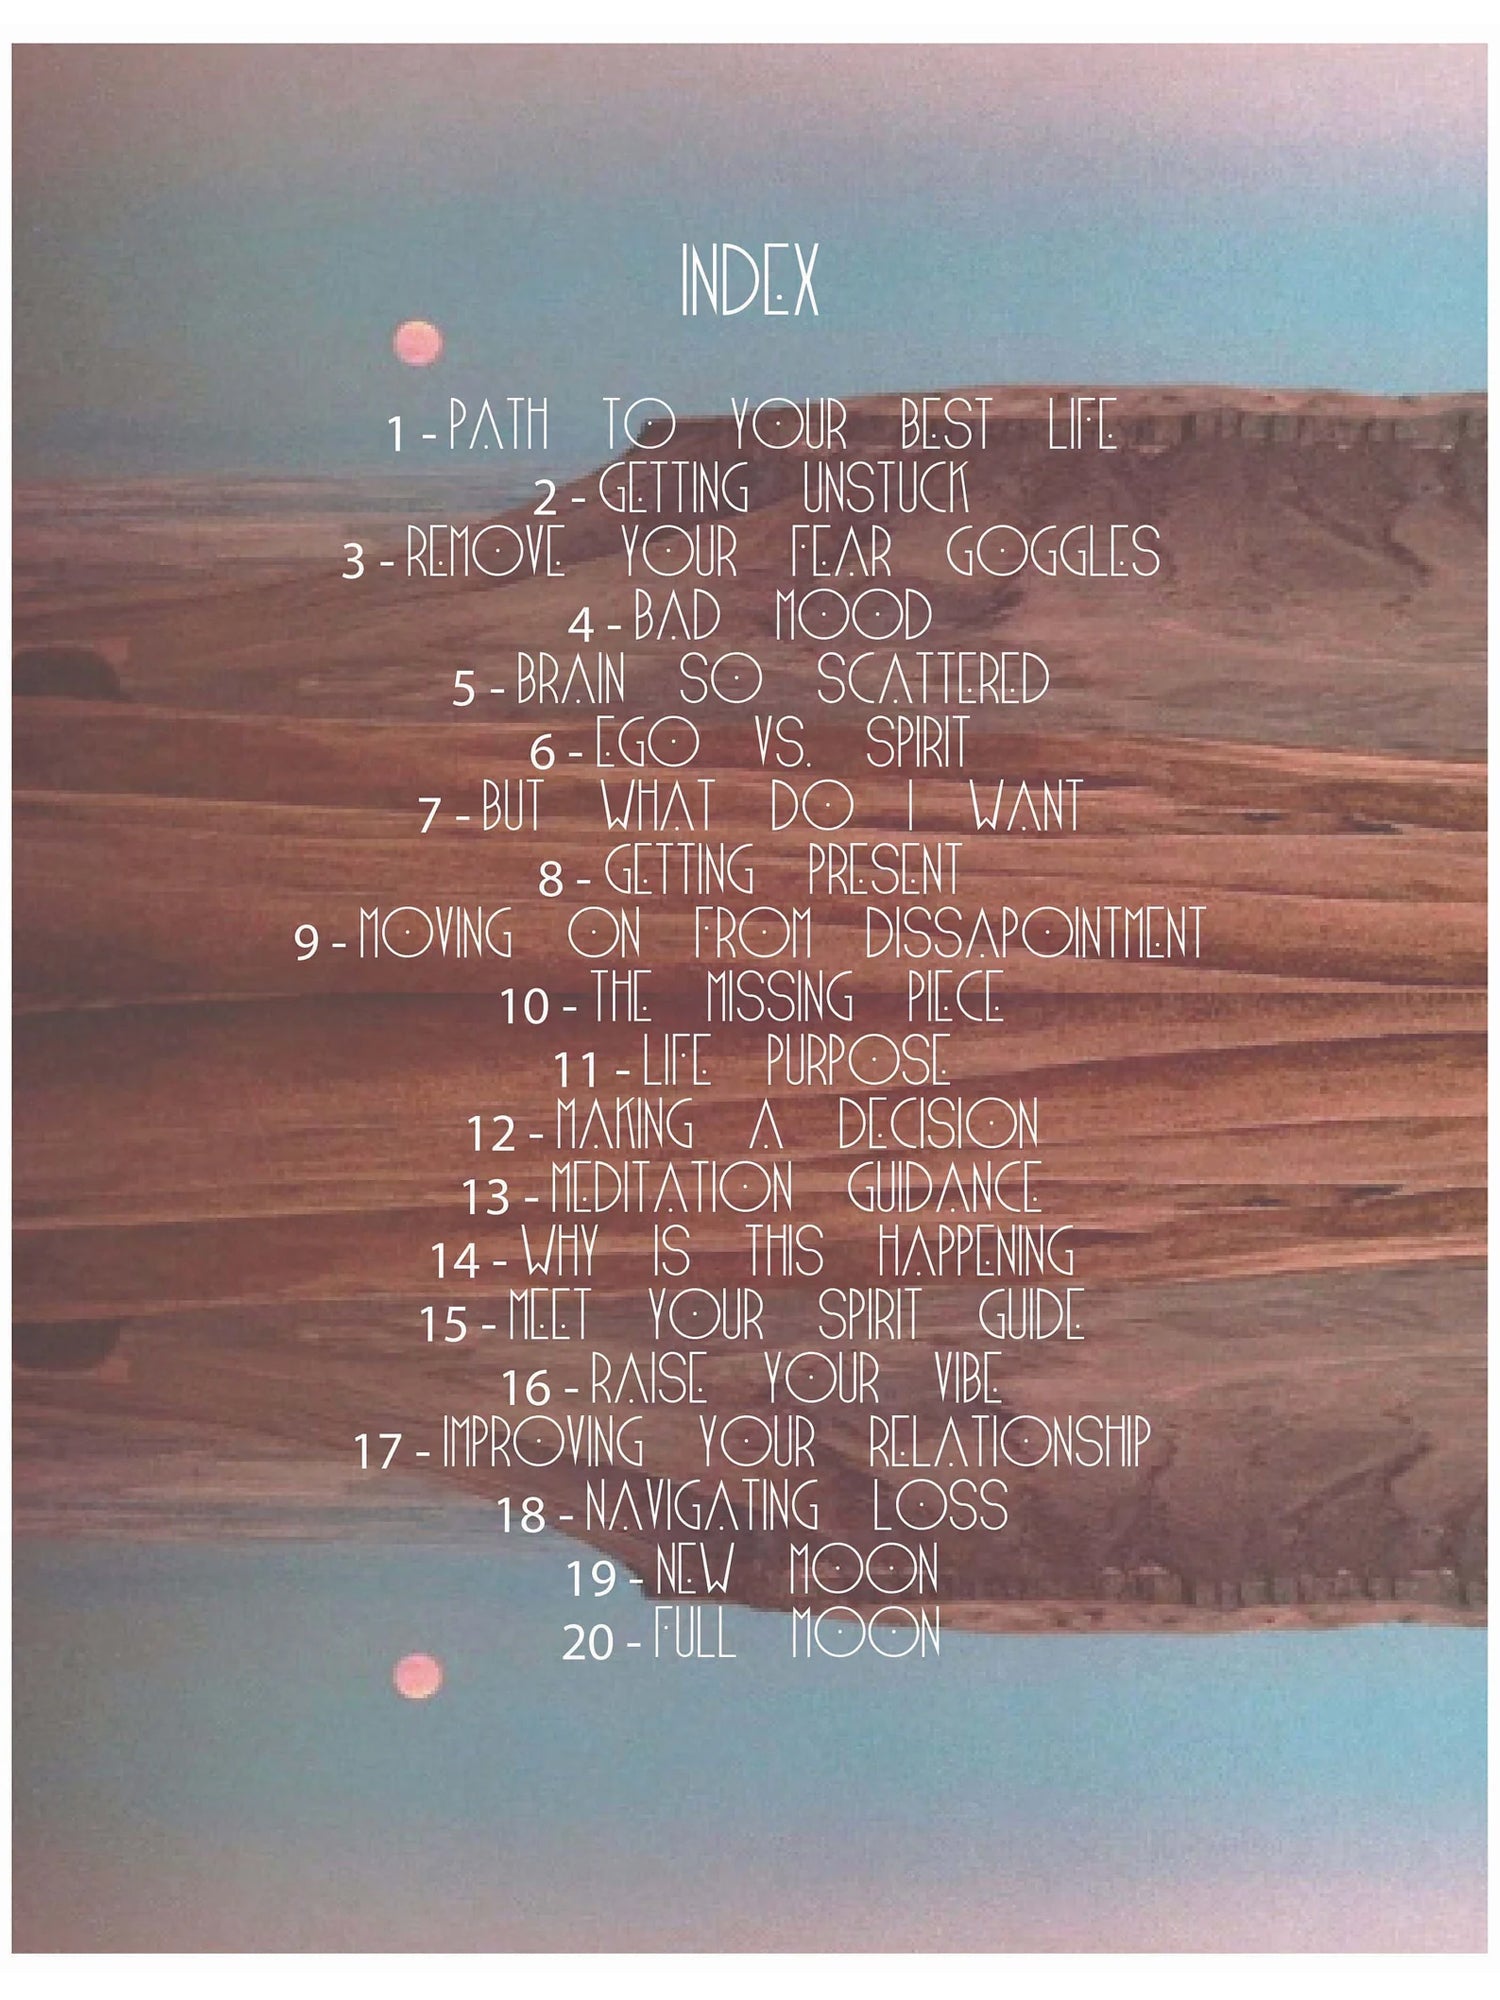 INDEX
1 - PATH TO YOUR BEST LIFE
2 - GETTING UNSTUCK
3 - REMOVE YOUR FEAR GOGGLES
4 - BAD MOOD
5 - BRAIN SO SCATTERED
6 - EGO VS. SPIRIT
7 - BUT WHAT DO I WANT
8 - GETTING PRESENT
9 - MOVING ON FROM DISSAPOINTMENT
10 - THE MISSING PIECE
11 - LIFE PURPOSE
12 - MAKING A DECISION
13 - MEDITATION GUIDANCE
14 - WHY IS THIS HAPPENING
15 - MEET YOUR SPIRIT GUIDE
16 - RAISE YOUR VIBE
17 - IMPROVING YOUR RELATIONSHIP
18 - NAVIGATING LOSS
19 - NEW MOON
20 - FULL MOON